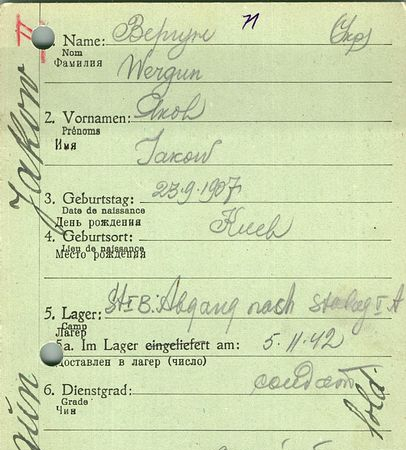 1. Name: Вергун 71 (Укр)
Nom
Фамилия Wergun
2. Vornamen: Яков
Prénoms
Имя Jakow
3. Geburtstag: 23.9.1907
Date de naissance
День рождения
4. Geburtsort: Киев
Lieu de naissance
Место рождения
5. Lager: St I B. Abgang nach Stalag I A
Camp
Лагерь
5a. Im Lager eingeliefert am: 5.11.42
Доставлен в лагер (число)
6. Dienstgrad: солдат
Grade
Чин
Sold.
Jakow